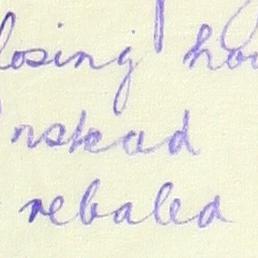 losing hou
nstead
rebaled